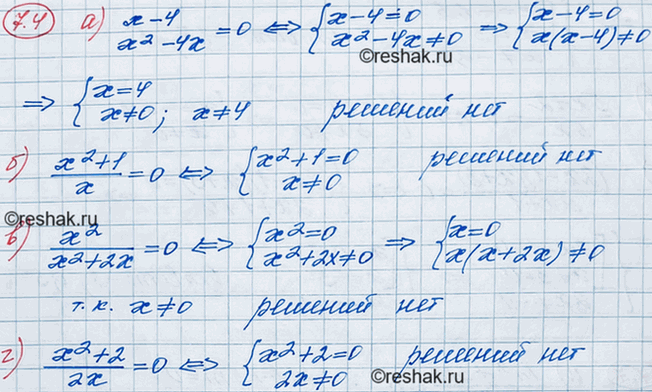 7.4 а) (x-4)/(x²-4x) = 0 ⟺ {x-4=0 x²-4x≠0 ⇒ {x-4=0 x(x-4)≠0
©reshak.ru
©reshak.ru
⇒ {x=4 x≠0; x≠4 решений нет
б) (x²+1)/x = 0 ⟺ {x²+1=0 x≠0 решений нет
©reshak.ru
в) x²/(x²+2x) = 0 ⟺ {x²=0 x²+2x≠0 ⇒ {x=0 x(x+2x)≠0
т.к. x≠0 решений нет
г) (x²+2)/2x = 0 ⟺ {x²+2=0 2x≠0 решений нет